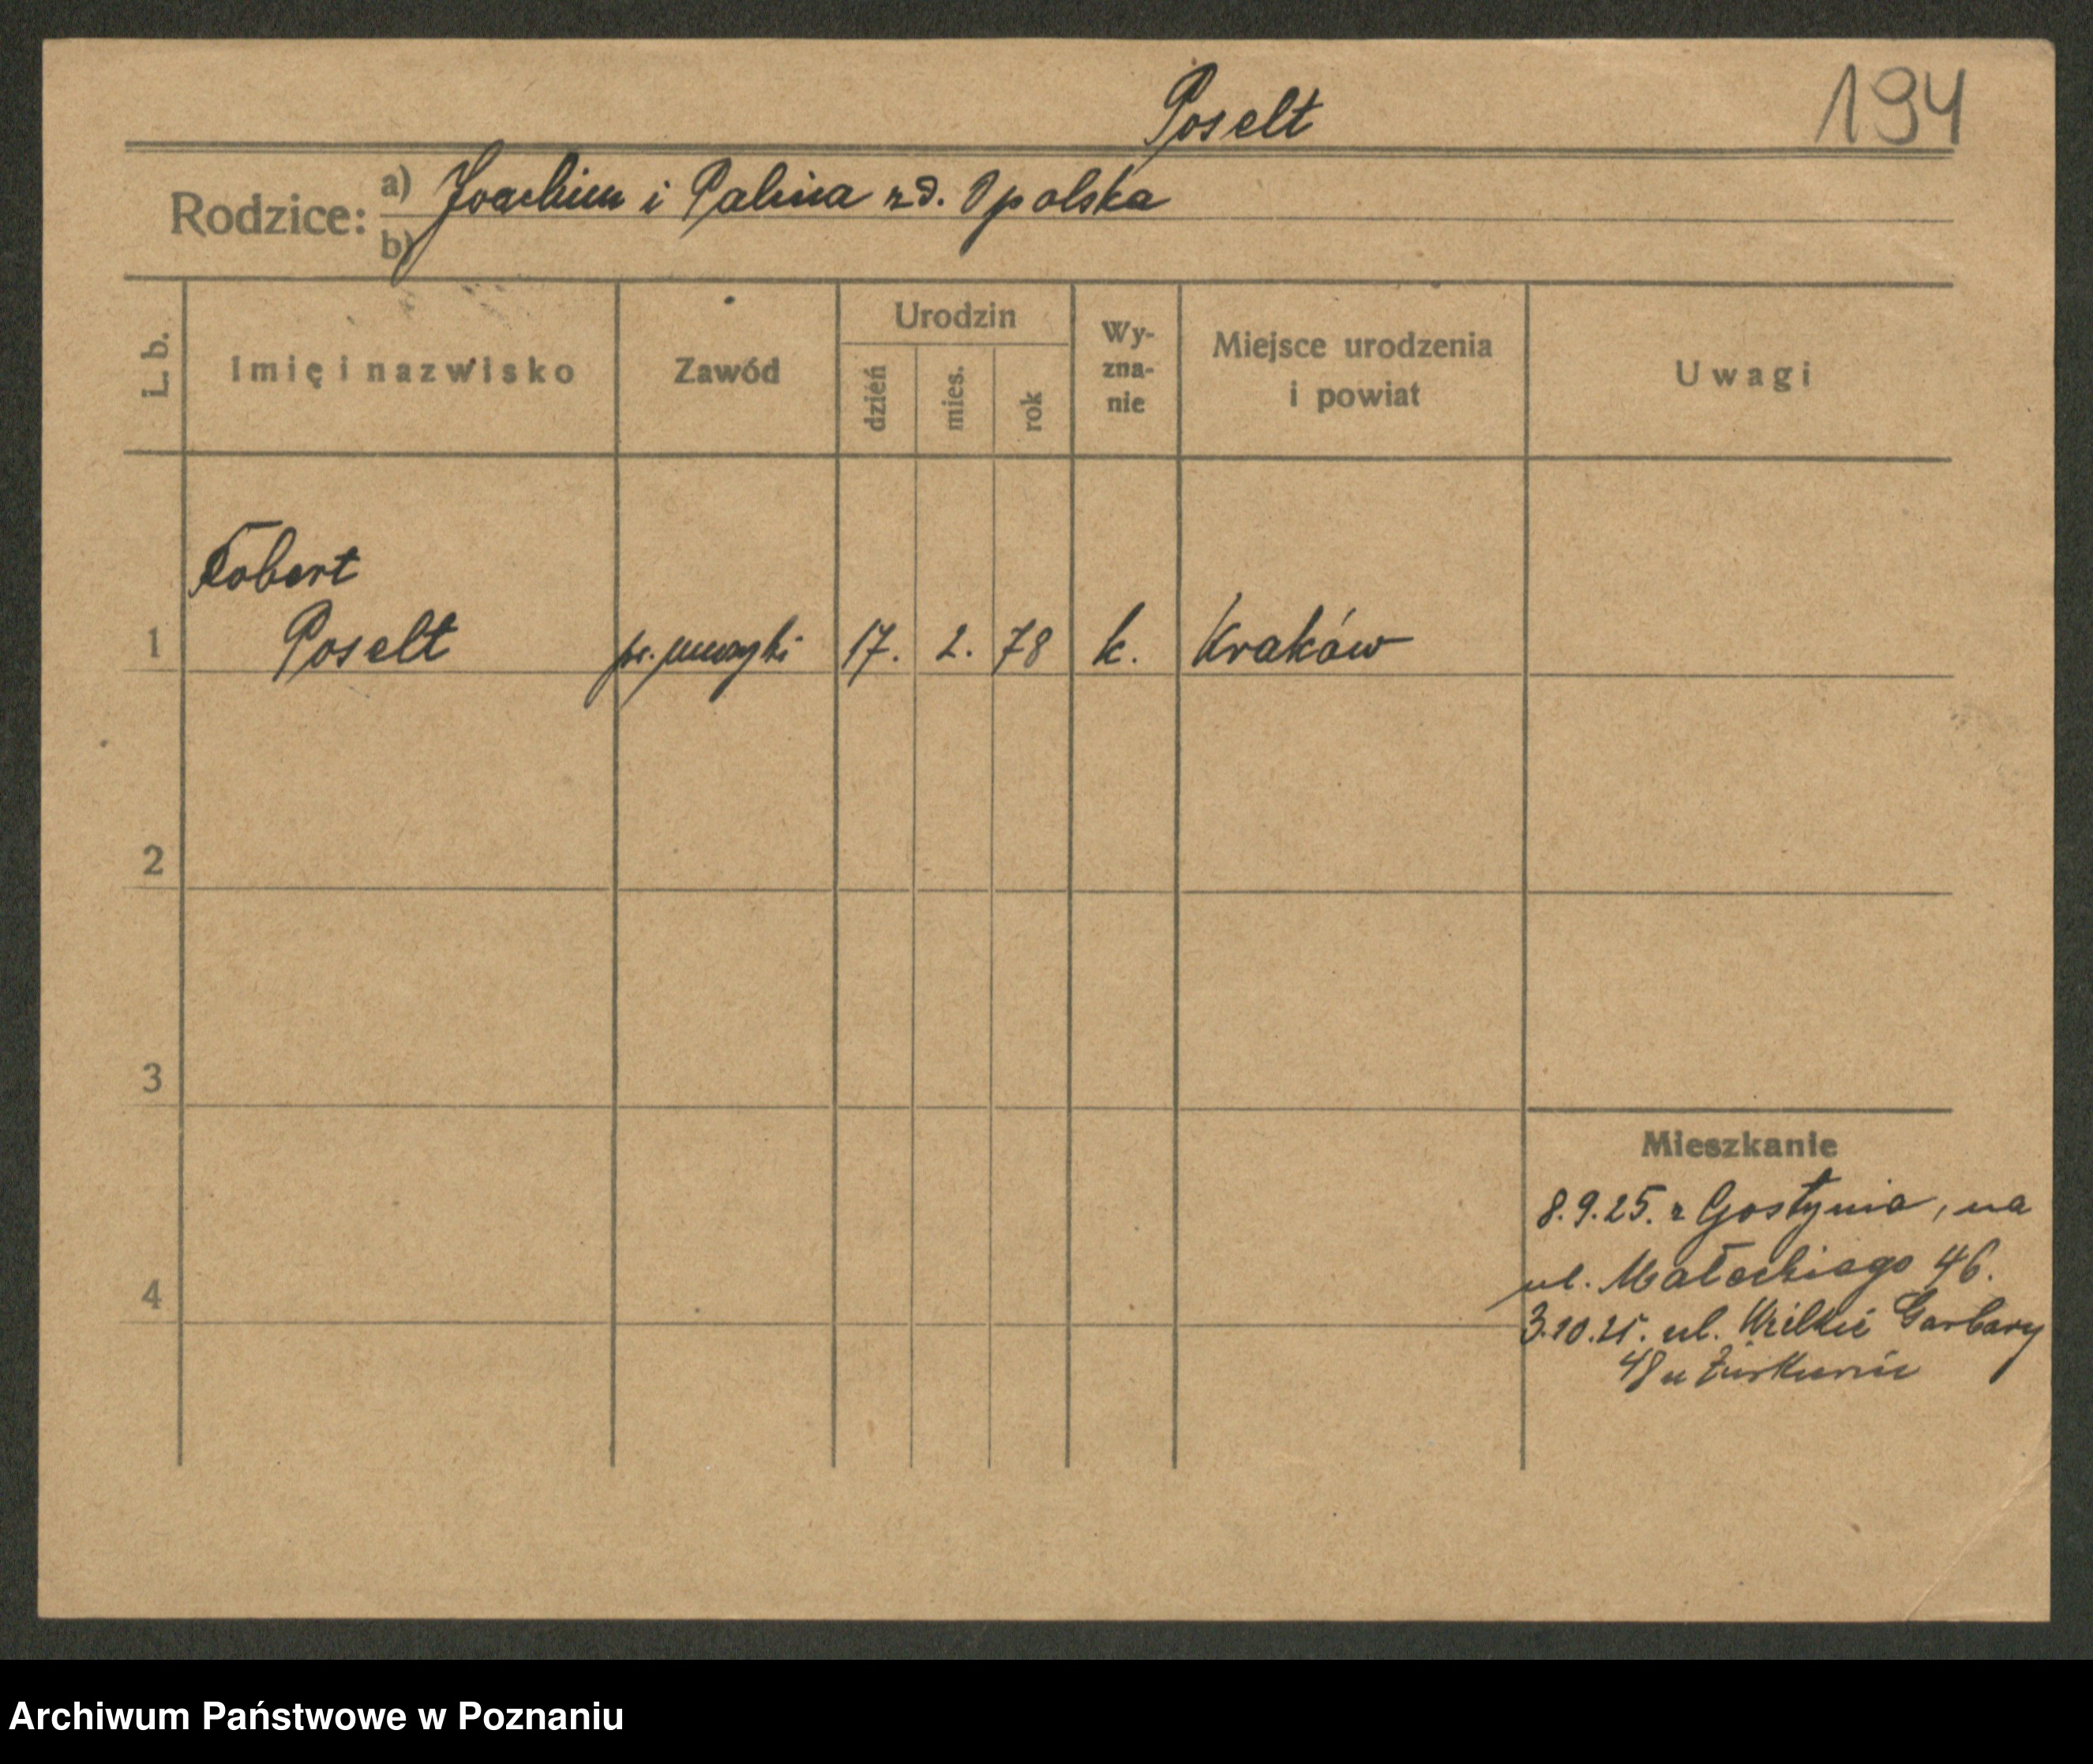 Poselt
194
Rodzice: a) Joachim i Palina zd. Opolska
b)
L. b.
Imię i nazwisko
Zawód
Urodzin
dzień
mies.
rok
Wy-
zna-
nie
Miejsce urodzenia
i powiat
Uwagi
Robert
1 Poselt pr. muzyki 17. 2. 78 k. Kraków
2
3
Mieszkanie
8.9.25. z Gostynia, na
ul. Małeckiego 46.
4
3.10.25. ul. Wielkie Garbary
48 u
Archiwum Państwowe w Poznaniu